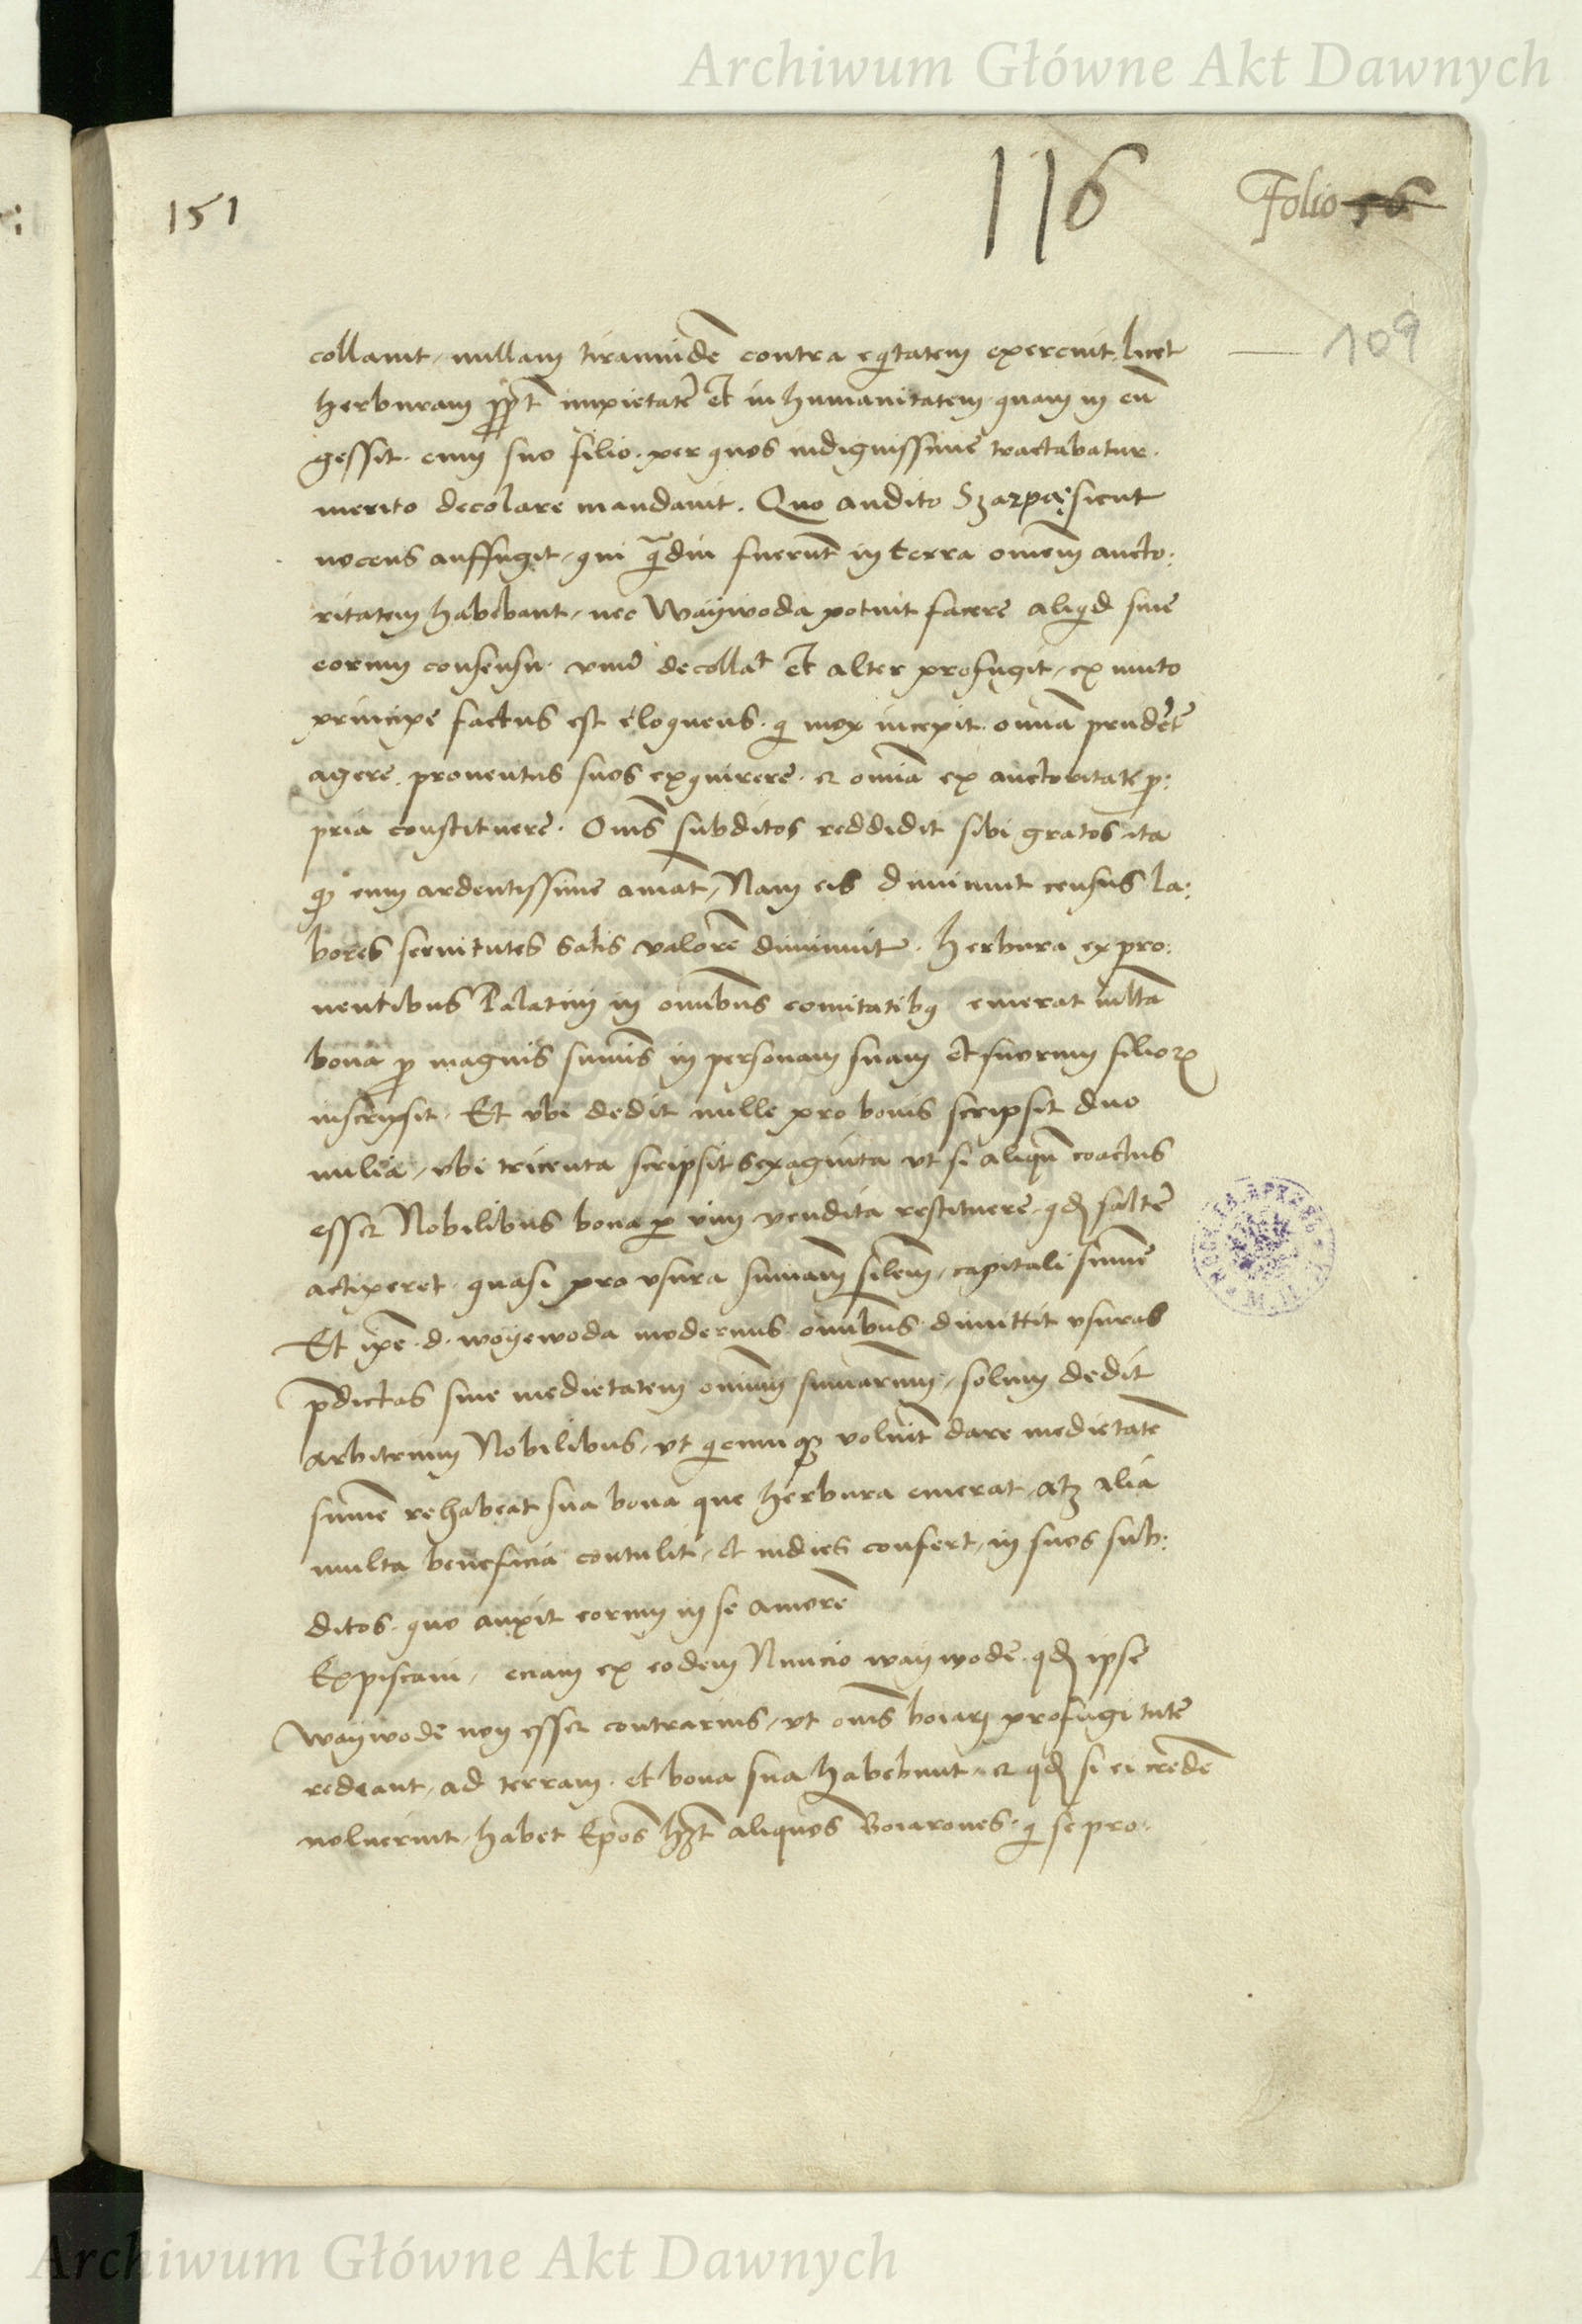 Archiwum Główne Akt Dawnych
151
116
Folio 56
109
collavit, nullam tiramnidē contra eqitatem exercuit, licet
herburam ꝓpt impietatē et inhumanitatem quam in eū
gessit. cum suo filio. per quos indignissime tractabatur.
merito decolare mandavit. Quo audito Szarpę sicut
nocens auffugit, qui qdiu fuerūt in terra omēm aucto:
ritatem habebant, nec Waywoda potuit facere aliqd sine
eorum consensu. vnus decollat et alter profugit, ex muto
principe factus est eloquens. qi mox incepit. omnia prudēt
agere. proventus suos exquirere. et omnia ex auctoritate ꝓ:
pria constituere. Om̄s subditos reddidit sibi gratos ita
qꝫ eum ardentissime amāt, Nam eis diminuit census la:
bores servitutes satis valorē diminuit. herbura ex pro:
ventibus Palatini in om̄ibus comitatibꝰ emerat mlta
bona ꝓ magnis sum̄is in personam suam et suorum filioꝝ
inscripsit. Et vbi dedit mille pro bonis scripsit duo
milia, vbi tricenta scripsit sexaginta vt si aliqn̄ coactus
esset Nobilibus bona ꝑ vim vendita restituere. qd saltē
acciperet. quasi pro vsura sum̄am silem̄, capitali sum̄e
Et ip̄e. d. woyewoda modernus. om̄ibus dimittit vsuras
p̄dictas sive medietatem om̄ium sum̄arum, solum dedit
arbitrium Nobilibus, vt qicumqꝫ voluit dare medietatē
sum̄e rehabeat sua bona que herbura emerat, atqꝫ alia
multa beneficia contulit, et indies confert, in suos sub:
ditos. quo auxit eorum in se amorē
Expiscavi, eciam ex eodem Nuncio waywode. qd ipse
waywode non esset contrarius, vt om̄s boiary profugi tute
redeant, ad terram. et bona sua habebunt. et qd si ei credē
noluerint, habet Ep̄os aliquos Boiarones. qi se pro:
Archiwum Główne Akt Dawnych